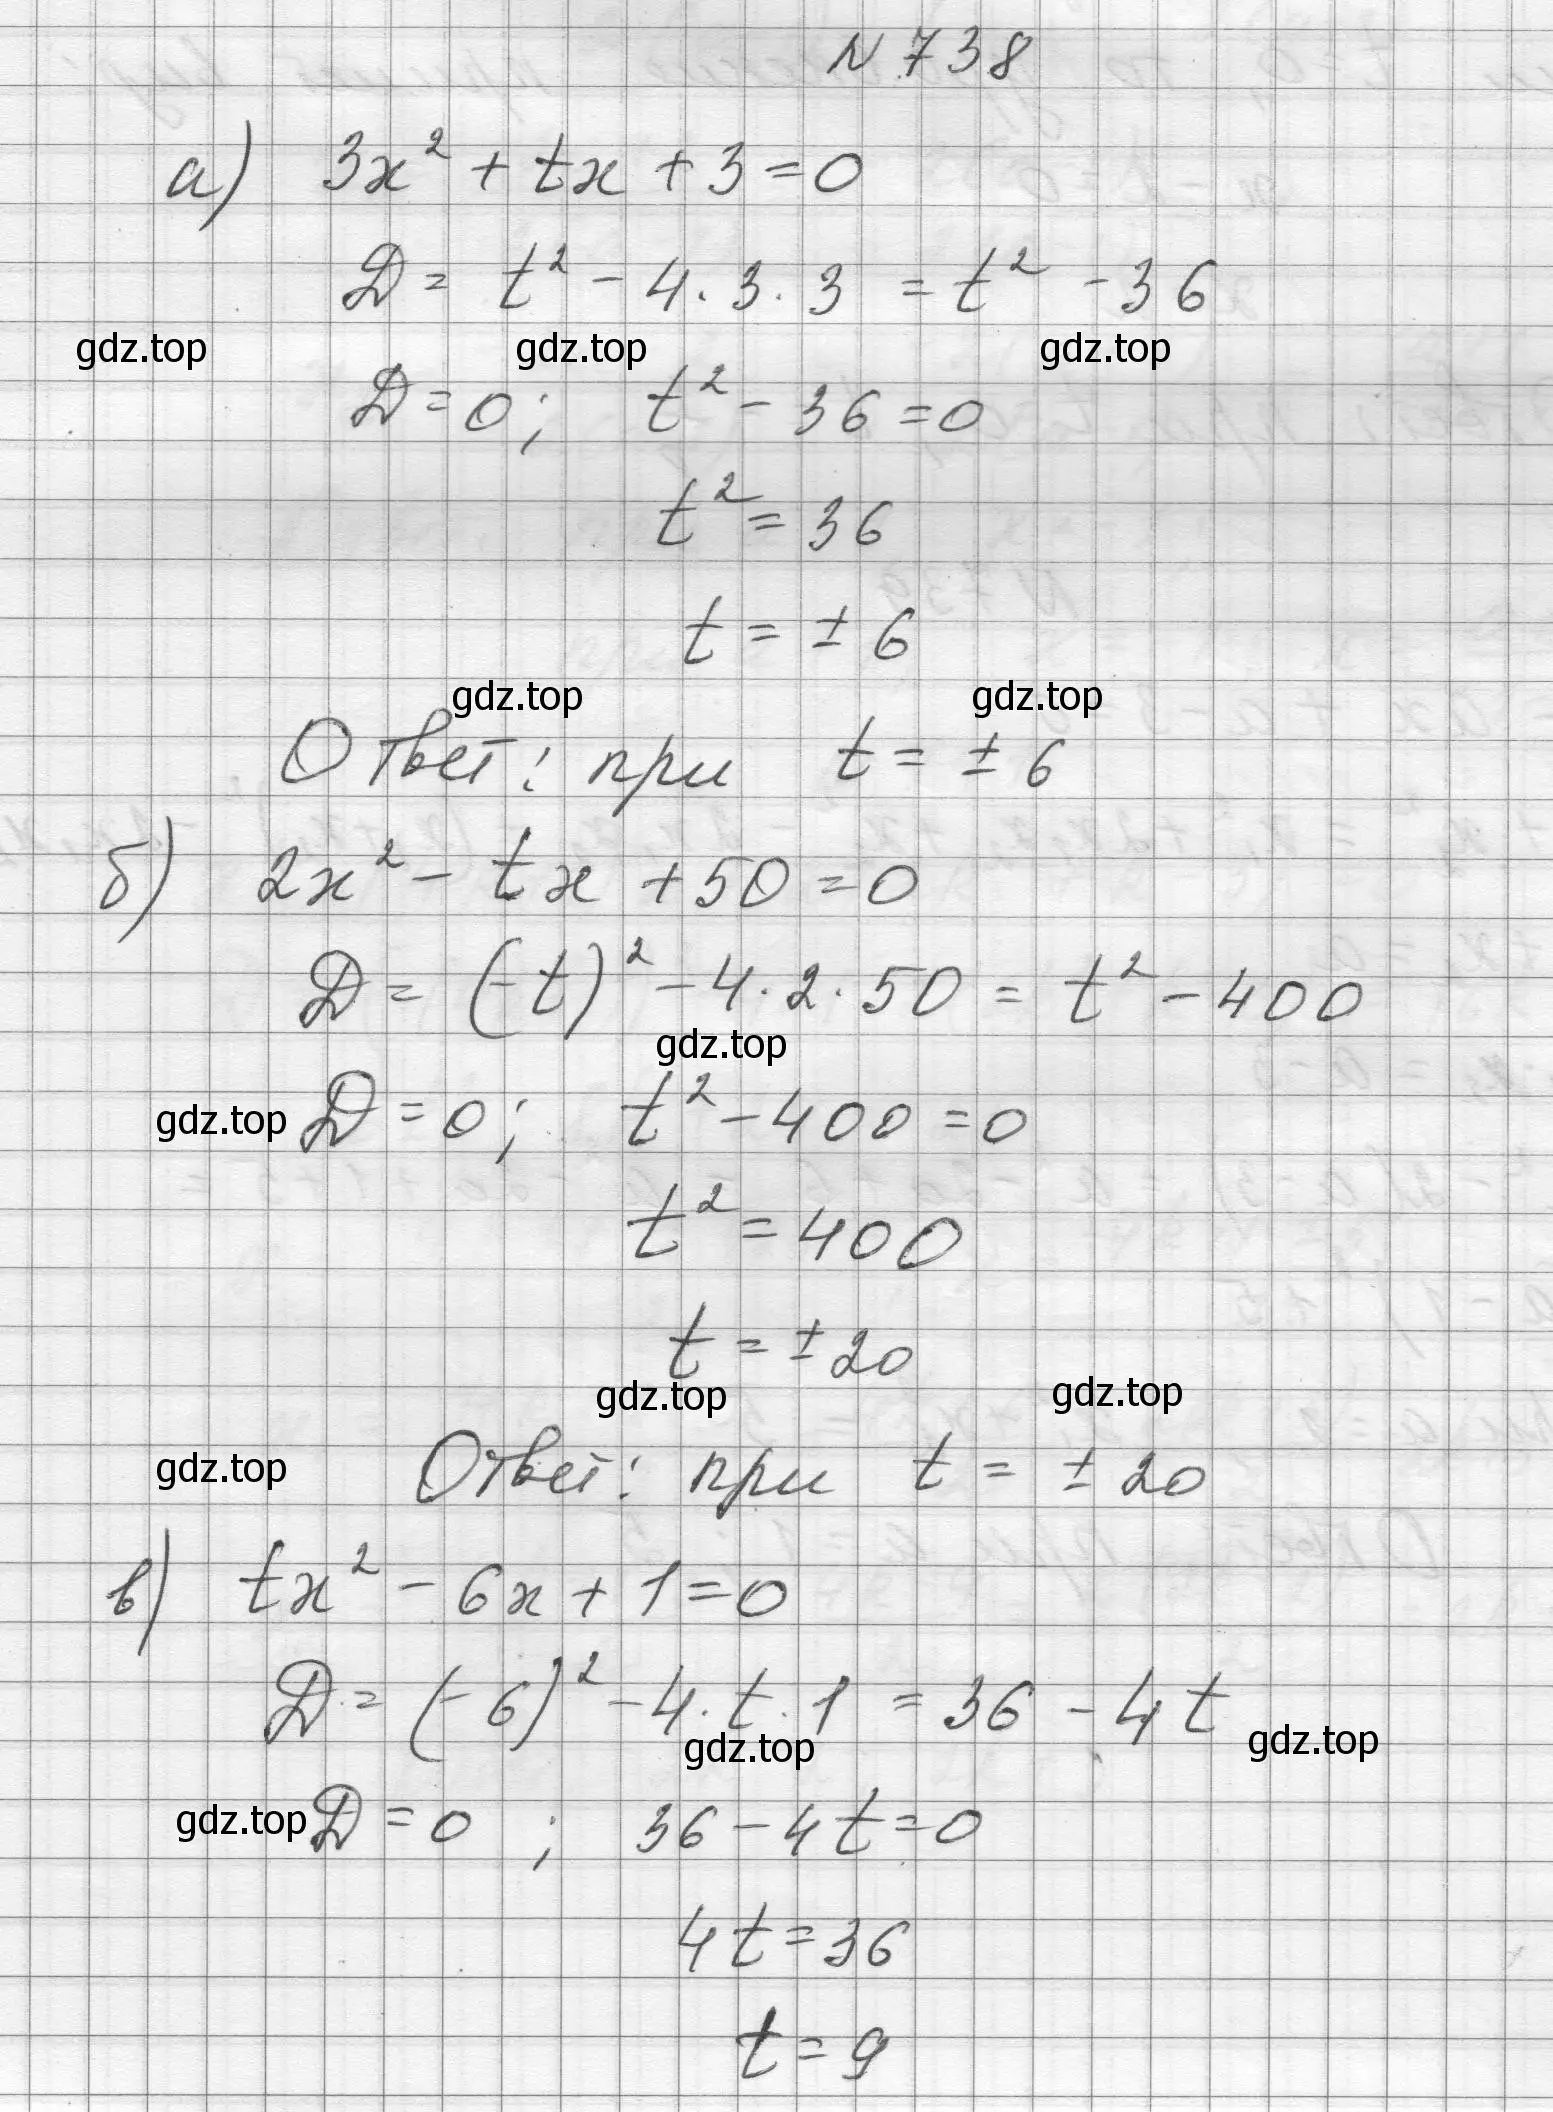 N 738
а) 3x² + tx + 3 = 0
D = t² - 4·3·3 = t² - 36
gdz.top gdz.top gdz.top
D = 0; t² - 36 = 0
t² = 36
t = ± 6
gdz.top gdz.top
Ответ: при t = ± 6
б) 2x² - tx + 50 = 0
D = (-t)² - 4·2·50 = t² - 400
gdz.top
gdz.top D = 0; t² - 400 = 0
t² = 400
t = ± 20
gdz.top gdz.top
gdz.top Ответ: при t = ± 20
в) tx² - 6x + 1 = 0
D = (-6)² - 4·t·1 = 36 - 4t
gdz.top gdz.top
gdz.top D = 0; 36 - 4t = 0
4t = 36
t = 9